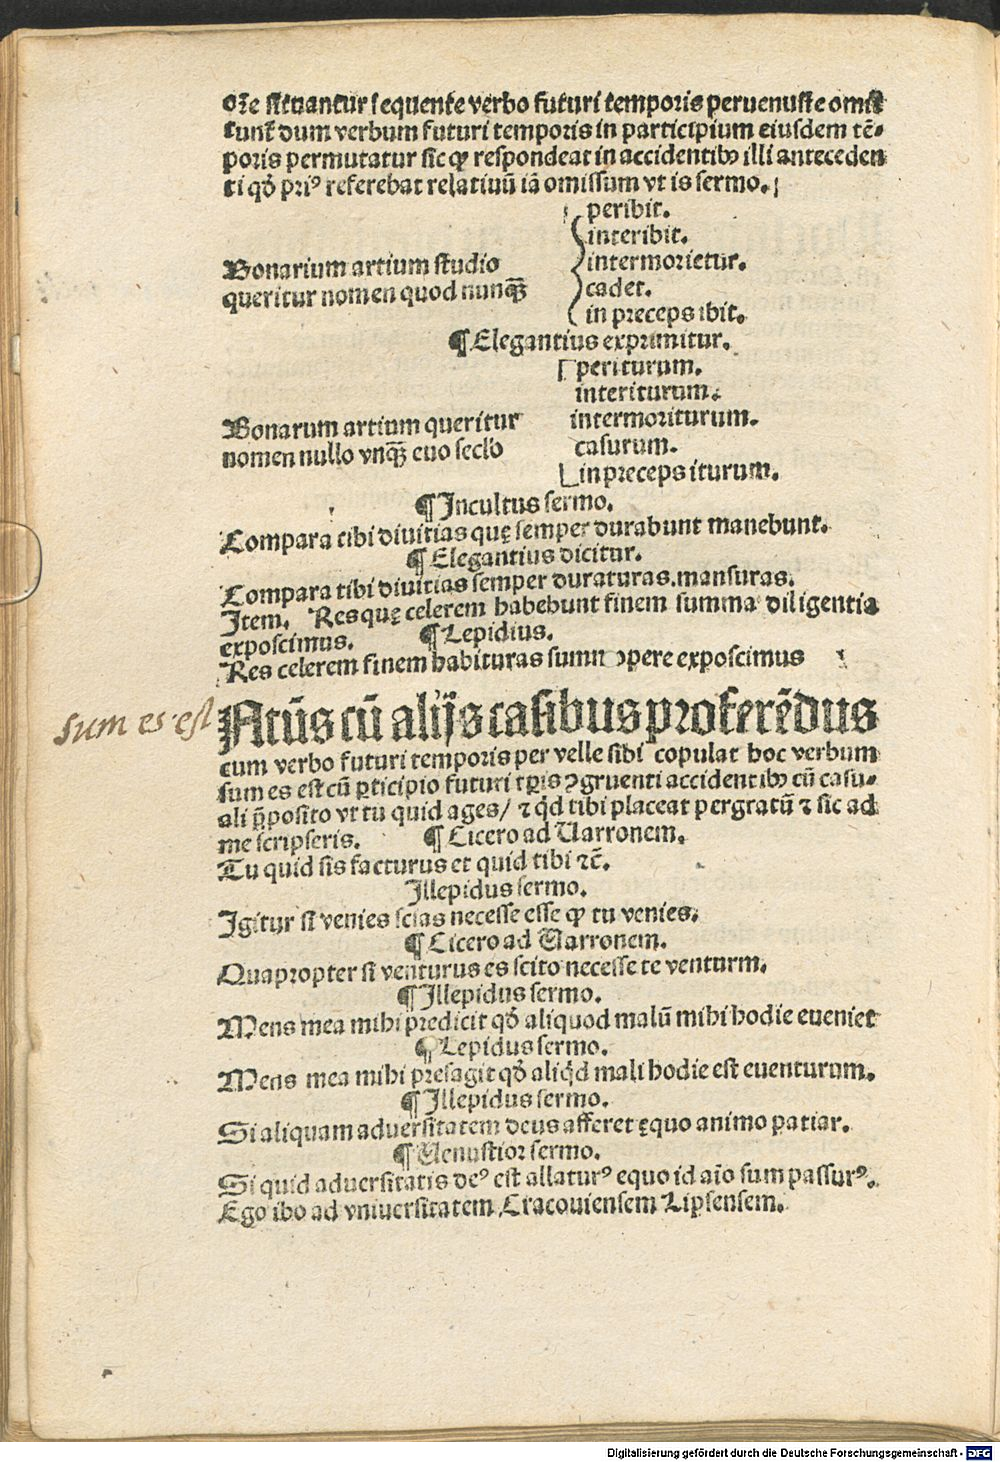 oẜe situantur sequente verbo futuri temporis peruenuste omit
tunt dum verbum futuri temporis in participium eiusdem tẽ-
poris permutatur sic ꝙ respondeat in accidentibꝰ illi anteceden
ti qđ priꝰ referebat relatiuũ iã omissum vt is sermo.
peribit.
interibit.
Bonarium artium studio intermorietur.
queritur nomen quod nunꝗ̃ cadet.
in preceps ibit.
¶ Elegantius exprimitur.
periturum.
interiturum.
Bonarum artium queritur intermoriturum.
nomen nullo vnꝗ̃ euo seclo casurum.
in preceps iturum.
¶ Incultus sermo.
Compara tibi diuitias quę semper durabunt manebunt.
¶ Elegantius dicitur.
Compara tibi diuitias semper duraturas.mansuras.
Item. Res quę celerem habebunt finem summa diligentia
exposcimus. ¶ Lepidius.
Res celerem finem habituras summ ɔpere exposcimus
Sum es est
Atũs cũ alijs casibus proferẽdus
cum verbo futuri temporis per velle sibi copulat hoc verbum
sum es est cũ ꝑticipio futuri tꝑis ɔgruenti accidentibꝰ cũ casu-
ali p̃posito vt tu quid ages/ ⁊ qd tibi placeat pergratũ ⁊ sic ad
me scripseris. ¶ Cicero ad Varronem.
Tu quid sis facturus et quid tibi ⁊c̃.
Illepidus sermo.
Igitur si venies scias necesse esse ꝙ tu venies.
¶ Cicero ad Varronem.
Quapropter si venturus es scito necesse te venturm.
¶ Illepidus sermo.
Mens mea mihi predicit qđ aliquod malũ mihi hodie eueniet
¶ Lepidus sermo.
Mens mea mihi presagit qđ aliqd mali hodie est euenturum.
¶ Illepidus sermo.
Si aliquam aduersitatem deus afferet ęquo animo patiar.
¶ Venustior sermo.
Si quid aduersitatis deꝰ est allaturꝰ equo id aĩo sum passurꝰ.
Ego ibo ad vniuersitatem Cracouiensem Lipsensem.
Digitalisierung gefördert durch die Deutsche Forschungsgemeinschaft - DFG